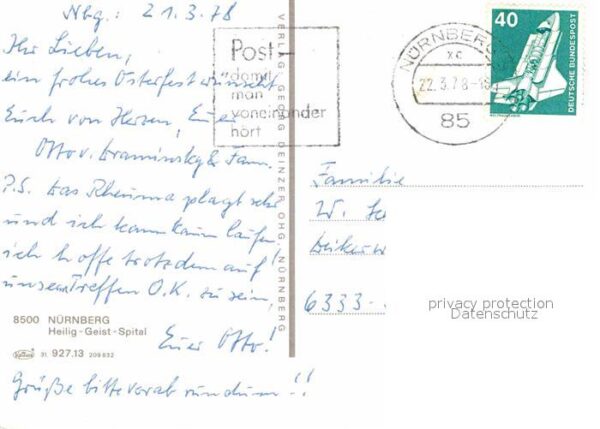 Nbg.: 21.3.78
Ihr Lieben,
ein frohes Osterfest wünscht
Euch von Herzen, Euer
Otto v. & Fam.
P.S. Das Rheuma plagt sehr
und ich kann kaum laufen!
ich hoffe trotzdem auf
unser Treffen O.K. zu sein,
Euer Otto!
Grüße bitte vorab rundum!!
8500 NÜRNBERG
Heilig-Geist-Spital
31 927.13 209 832
VERLAG GEORG DEINZER OHG NÜRNBERG
Post-
damit
man
voneinander
hört
NÜRNBERG
xc
22.3.78-18
85
40
DEUTSCHE BUNDESPOST
Familie
W.
6333-
privacy protection
Datenschutz